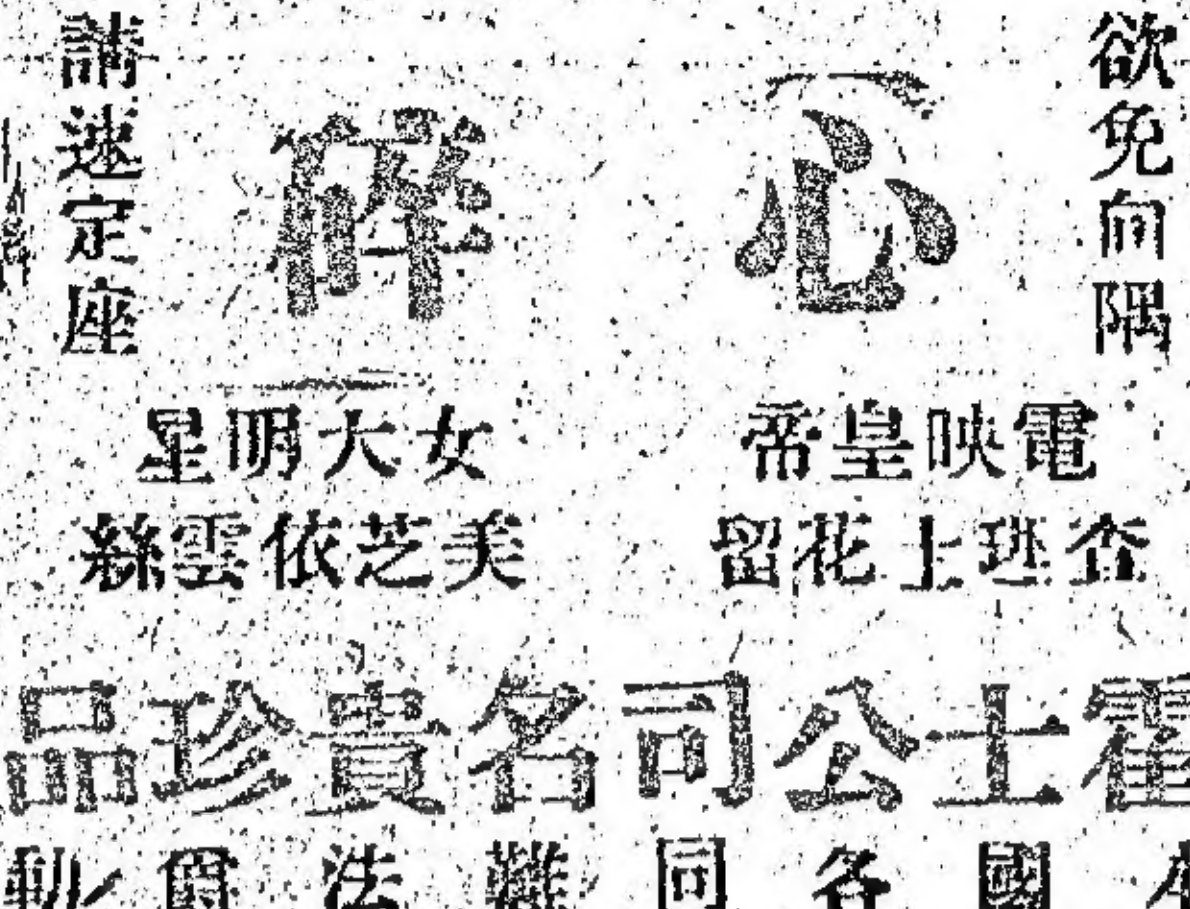 欲免向隅
心碎
請速定座
電映皇帝
女大明星
查上花留
美芝依雲絲
霍士公司名貴珍品
國各同法